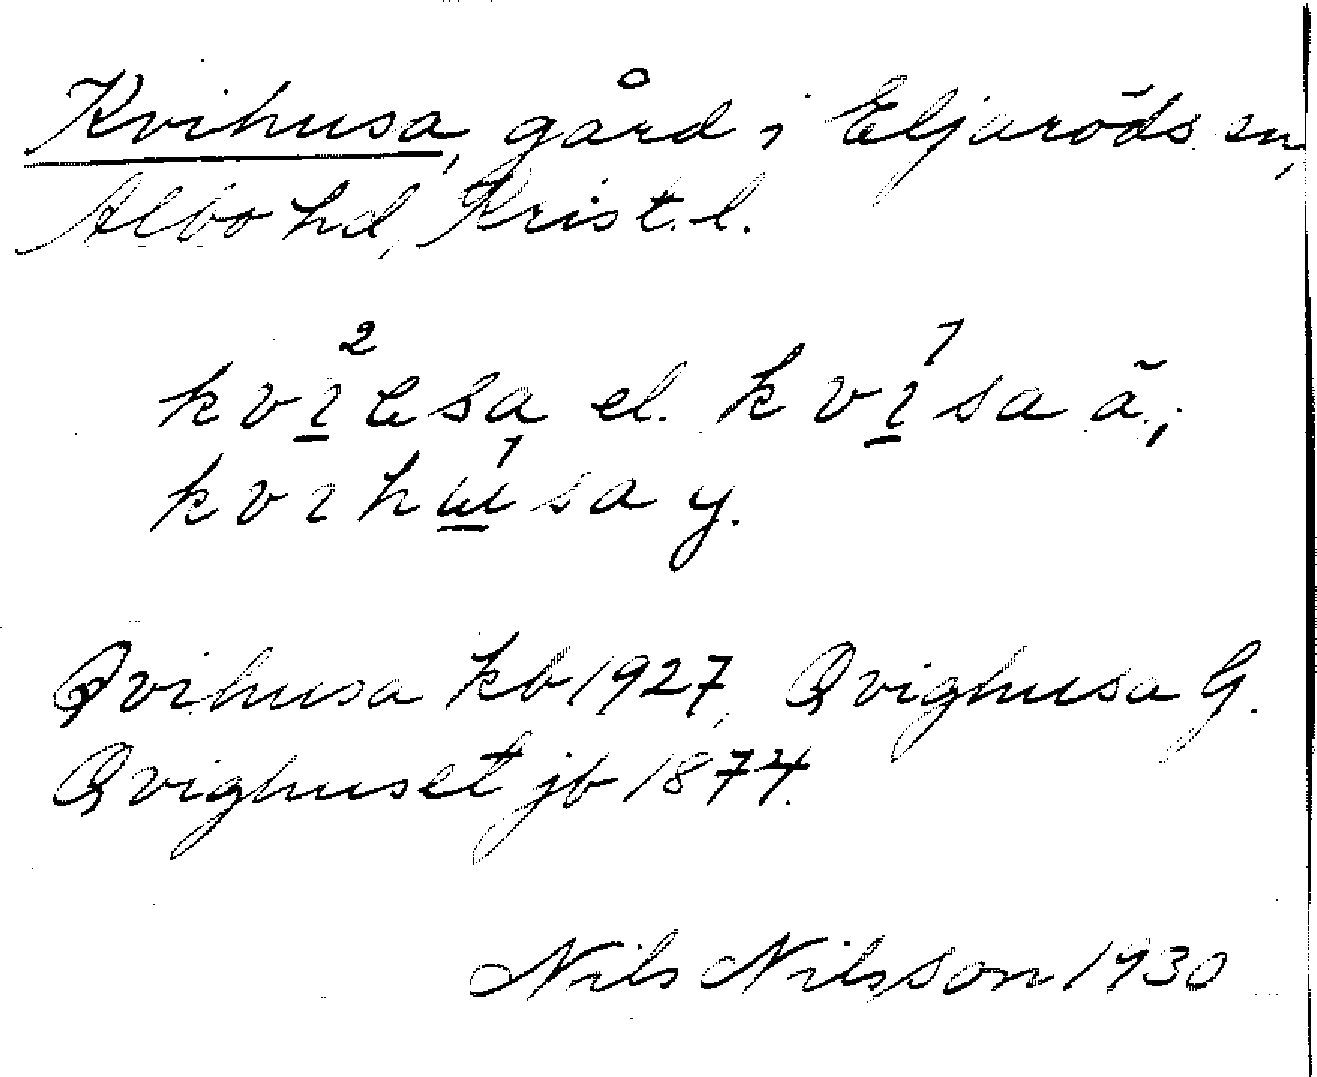 Kvihusa, gård i Eljaröds sn,
Albo hd, Krist. l.
kvɪ²ɐsa el. kvɪ¹sa ä.;
kvɪhɯ¹sa y.
Qvihusa kb 1927, Qvighusa G.
Qvighuset jb 1874.
Nils Nilsson 1930